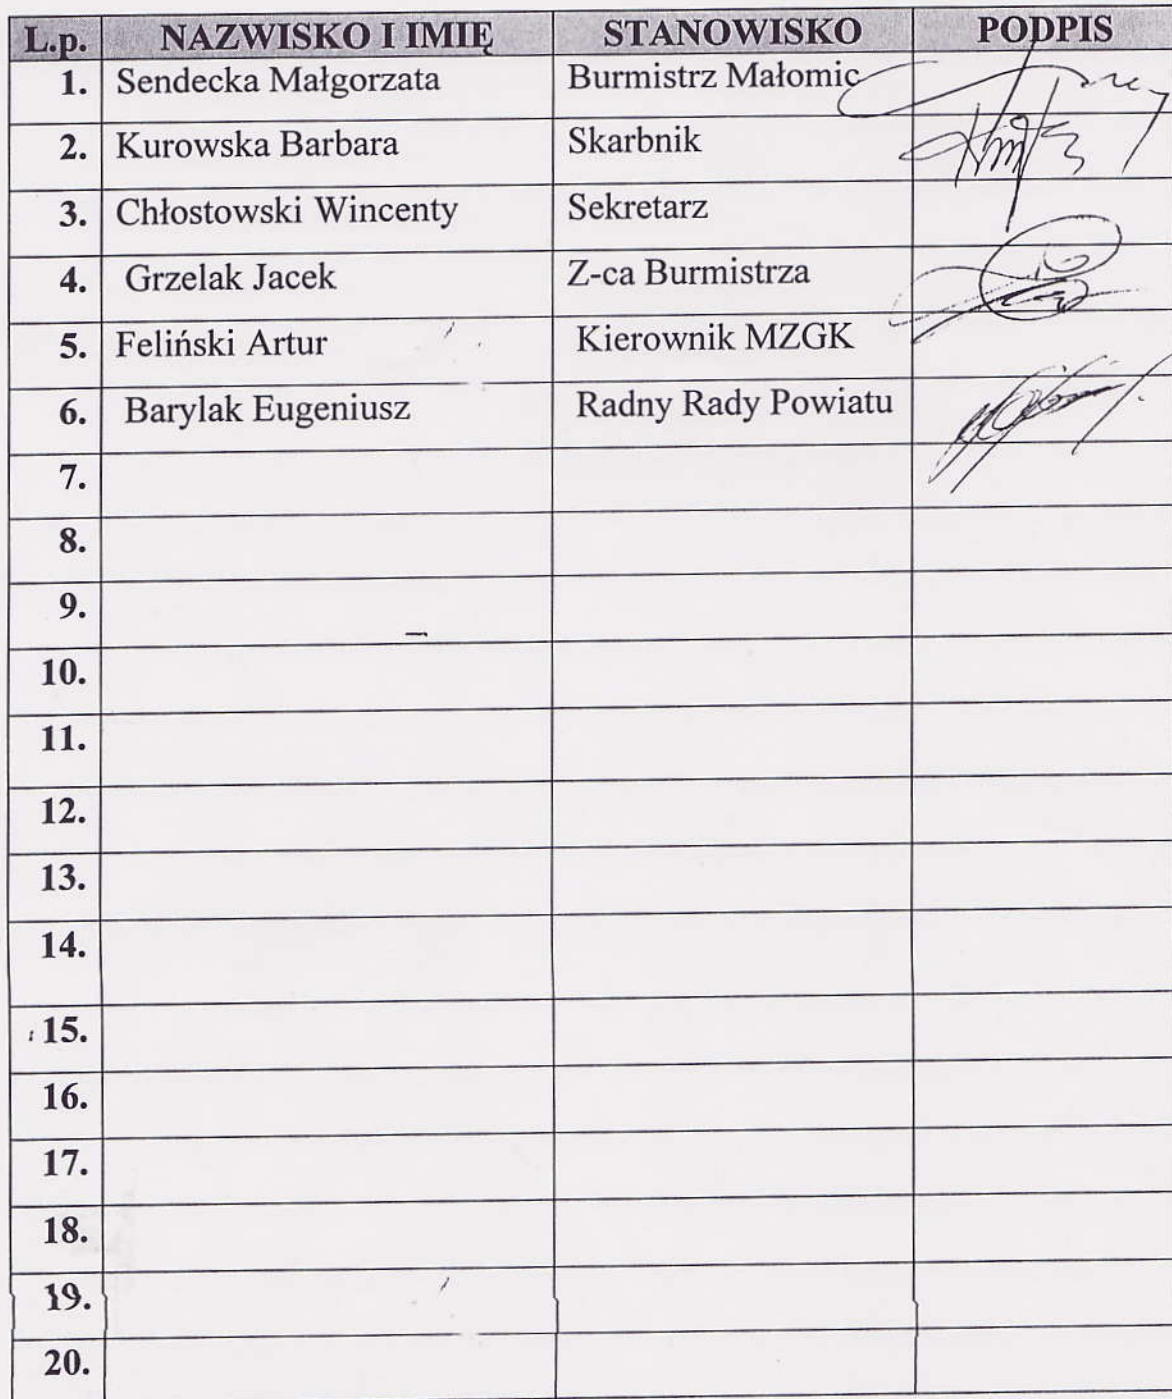 L.p. NAZWISKO I IMIĘ STANOWISKO PODPIS
1. Sendecka Małgorzata Burmistrz Małomic
2. Kurowska Barbara Skarbnik
3. Chłostowski Wincenty Sekretarz
4. Grzelak Jacek Z-ca Burmistrza
5. Feliński Artur Kierownik MZGK
6. Barylak Eugeniusz Radny Rady Powiatu
7.
8.
9.
10.
11.
12.
13.
14.
15.
16.
17.
18.
19.
20.